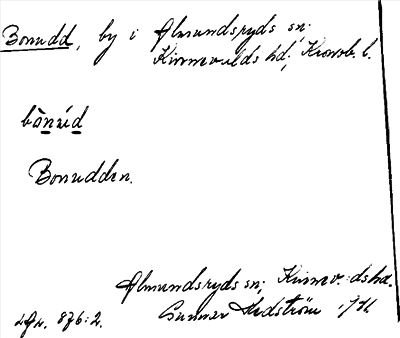 Bonudd, by i Almundsryds sn;
Kinnevalds hd; Kronob. l.
bònúd
Bonudden.
Almundsryds sn; Kinnev:ds hd.
Gunnar Hedström
LAL. 876:2.